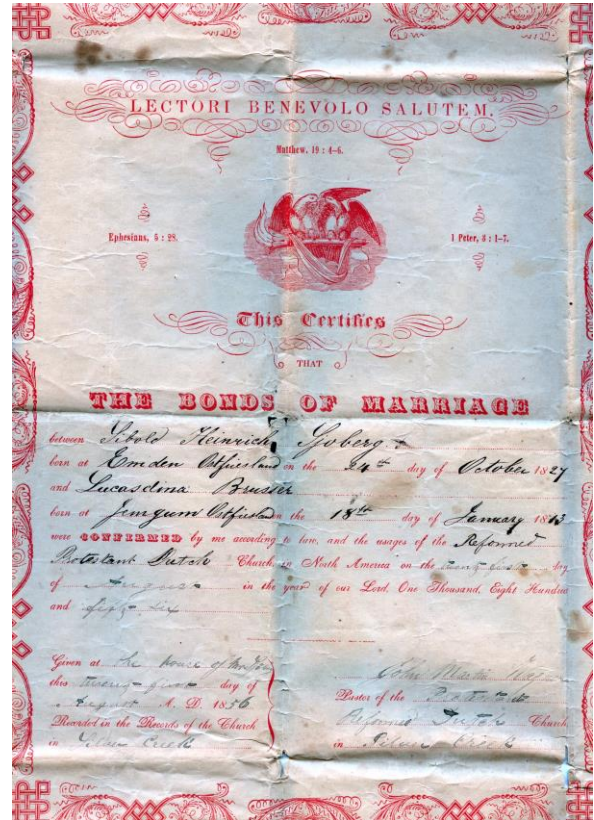 LECTORI BENEVOLO SALUTEM.
Matthew, 19 : 4-6.
Ephesians, 5 : 28.
1 Peter, 3 : 1-7.
This Certifies
THAT
THE BONDS OF MARRIAGE
between Sibold Heinrich
born at Emden Ostfriesland on the 24th day of October 1827
and Lucasdina Brusser
born at Jemgum Ostfriesland on the 18th day of January 18
were CONFIRMED by me according to law, and the usages of the Reformed
Protestant Dutch Church in North America on the twenty first day
of August in the year of our Lord, One Thousand, Eight Hundred
and fifty six
Given at the house of
this twenty first day of
August A. D. 1856
Recorded in the Records of the Church
in Silver Creek
John
Pastor of the Protestant
Reformed Dutch Church
in Silver Creek